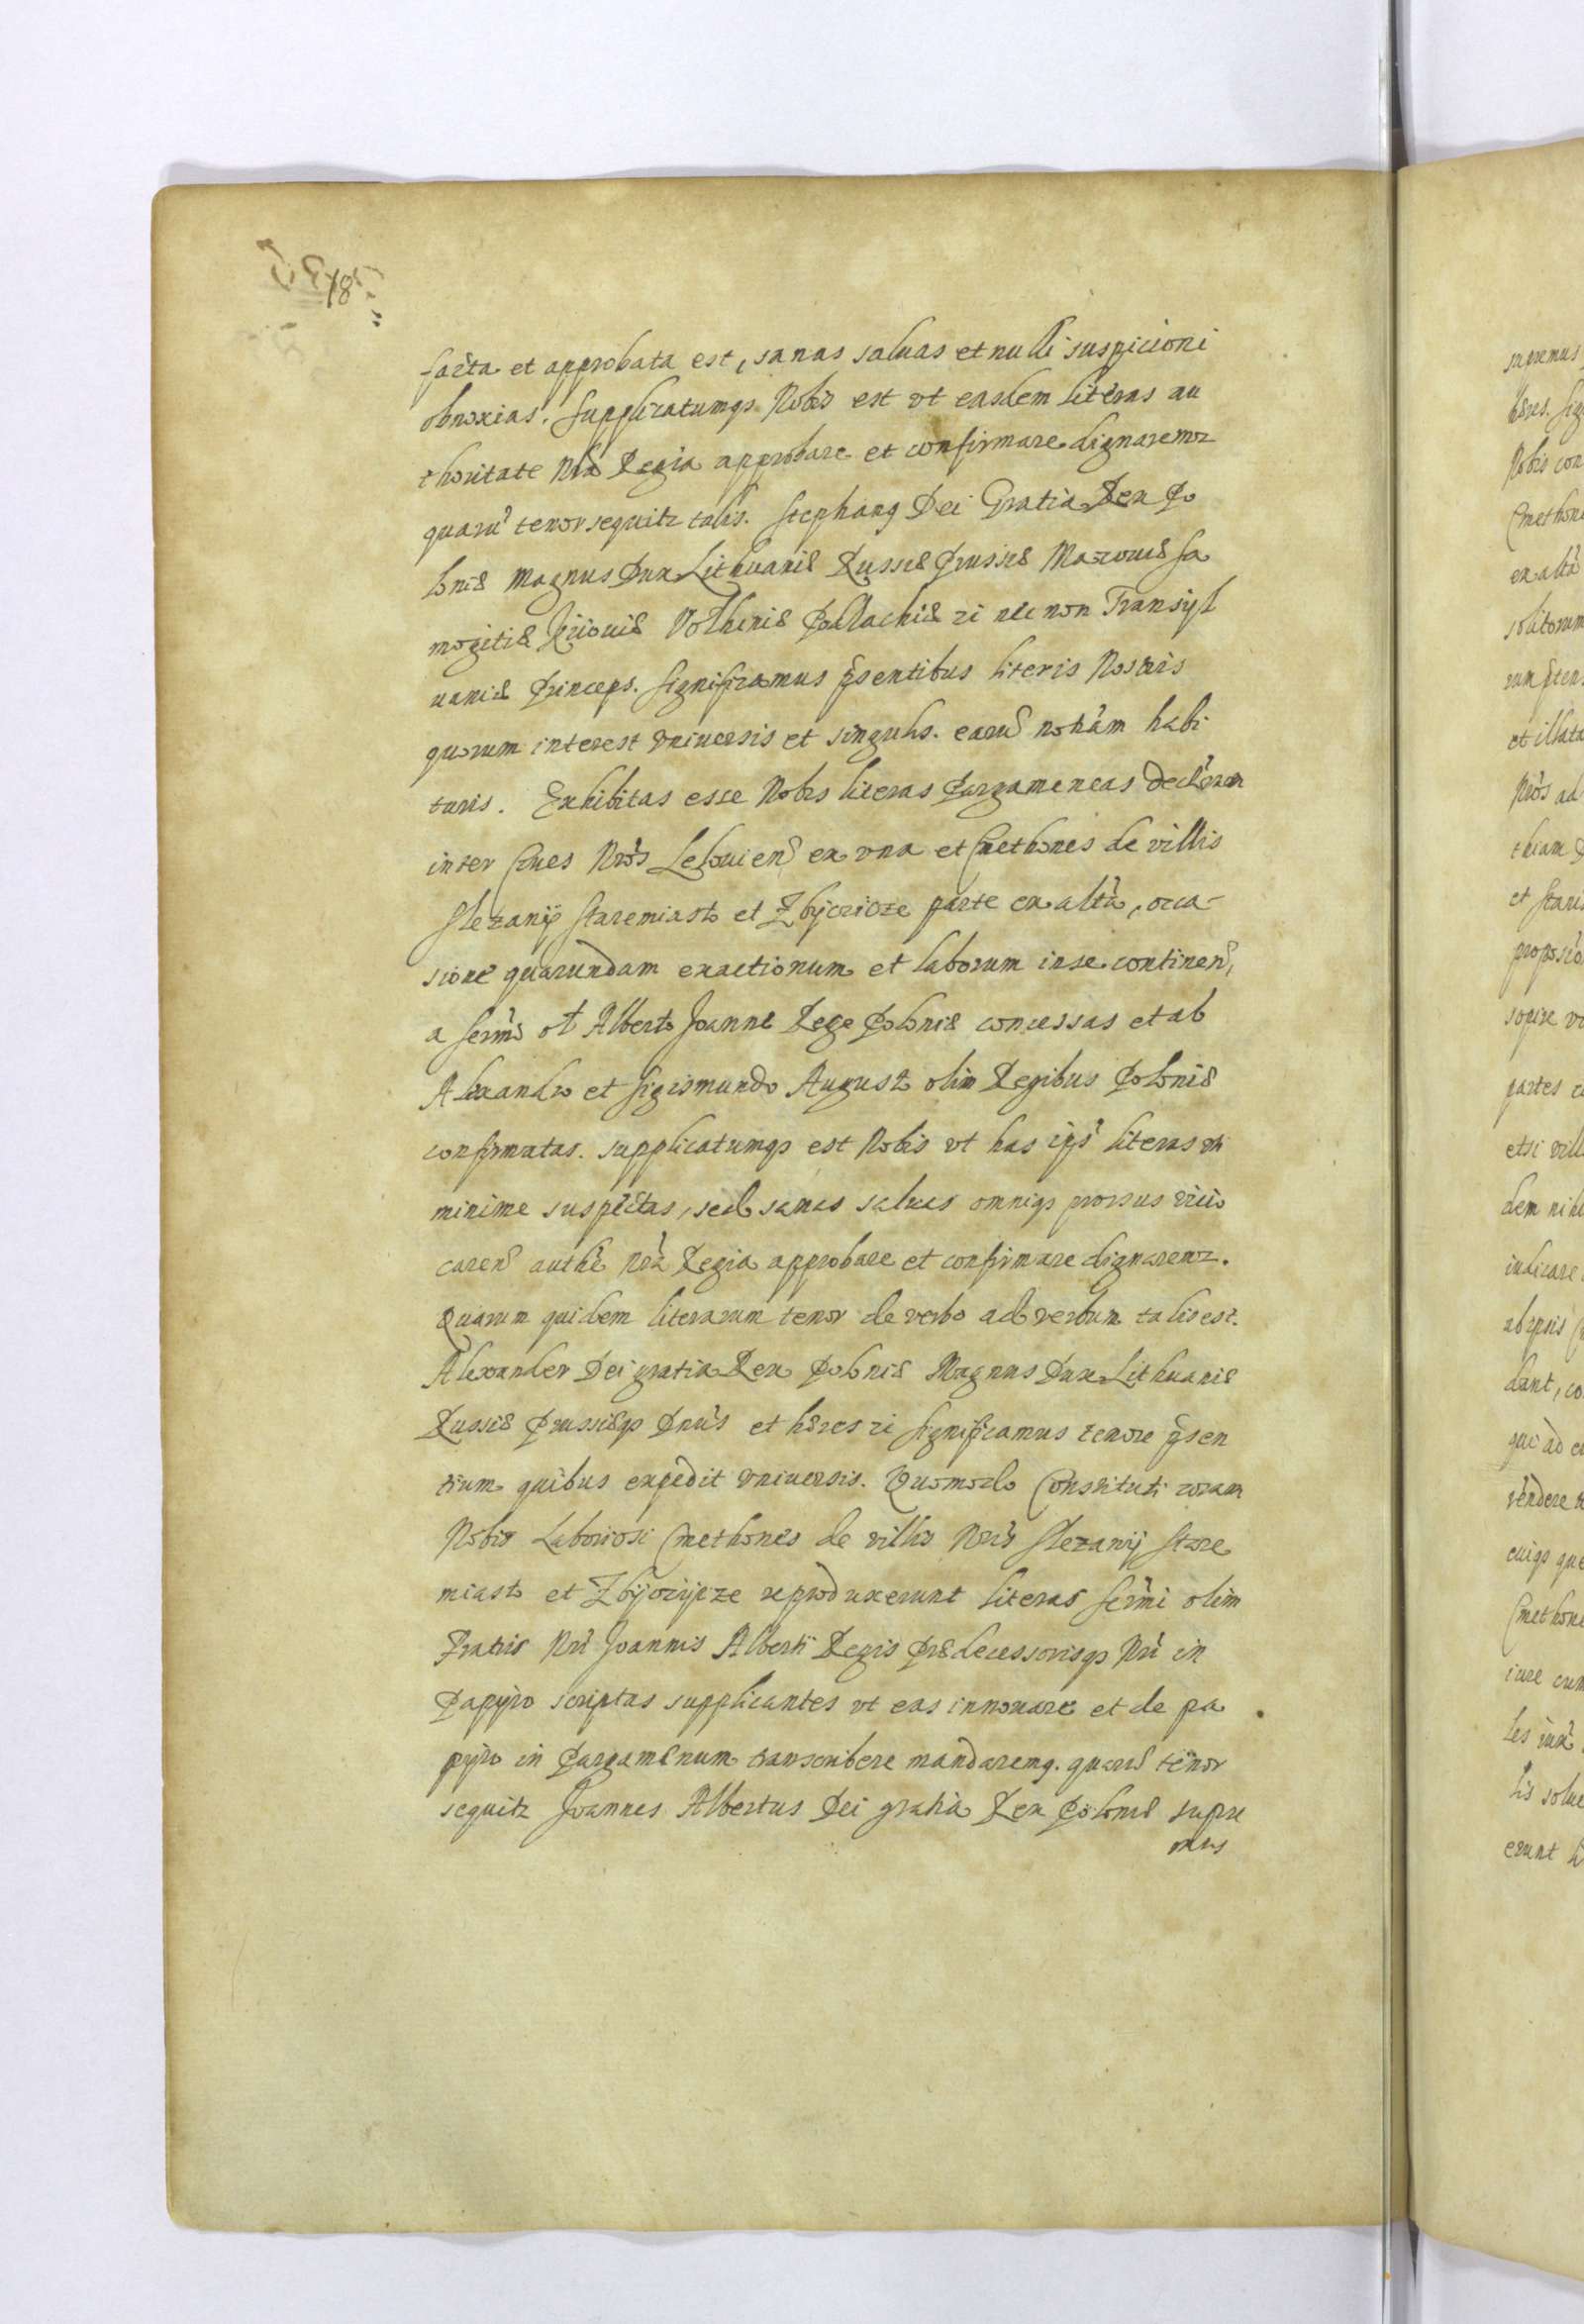 facta et approbata est, sanas saluas et nulli suspicioni
obnoxias. Supplicatumqs Nobis est vt easdem literas au
thoritate Nrã Regia approbare et confirmare dignaremur
quarũ tenor sequitr talis. Stephang Dei Gratia Rex Po
loniæ Magnus Dux Lithuaniæ Russiæ Prussiæ Mazouiæ Sa
mogitiæ Kijouiæ Volhiniæ Podlachiæ zi nec non Transyl
uaniæ Princeps. Significamus p̃sentibus literis Nostris
quorum interest vniuersis et singulis. earũ notiam habi
turis. Exhibitas esse Nobis literas Pargameneas
inter Ciues Nros Lelouien̄ ex vna et Cmethones de villis
Slezanij Staremiasto et Zbÿczicze parte ex altã, occa-
sione quarundam exactionum et laborum in se continen̄,
a sermõ ol Alberto Joanne Rege Poloniæ concessas et ab
Alexandro et Sigismundo August olim Regibus Poloniæ
confirmatas. supplicatumqs est Nobis vt has ips̃ literas vti
minime suspectas, sed sanas saluas omniqs prorsus vitio
caren̄ authẽ nrã Regia approbare et confirmare dignaremr.
Quarum quidem literarum tenor de verbo ad verbum talis est.
Alexander Dei gratia Rex Poloniæ Magnus Dux Lithuaniæ
Russiæ Prussiæqs Dnũs et hæres zi significamus tenore p̃sen
tium quibus expedit vniuersis. Quomodo Constituti coram
Nobis Laboriosi Cmethones de villis Nrĩs Slezanij Stare
miasto et Zbijczÿcze reproduxerunt literas sermĩ olim
Fratris Nrĩ Joannis Alberti Regis Prædecessorisqs Nrĩ in
Papyro scriptas supplicantes vt eas innouare et de pa
pyro in Pargamenum transcribere mandaremg. quarũ tenor
sequitr Joannes Albertus Dei gratia Rex Poloniæ supre
mus